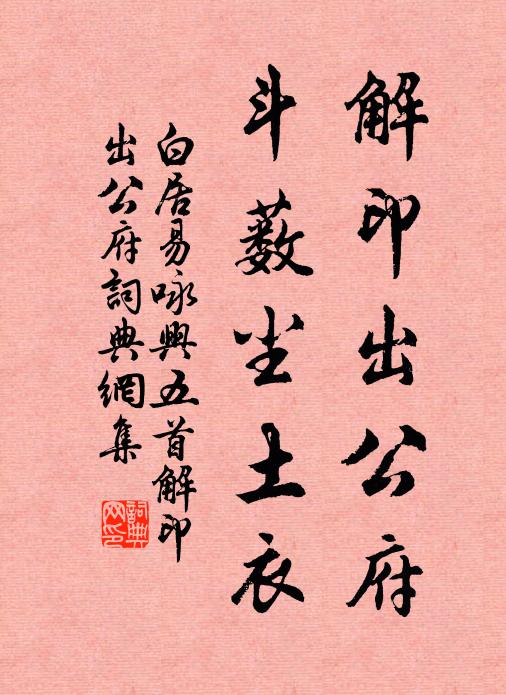 解印出公府
斗薮尘土衣
白居易咏興五首解印
出公府詞典網集
詞典
网印